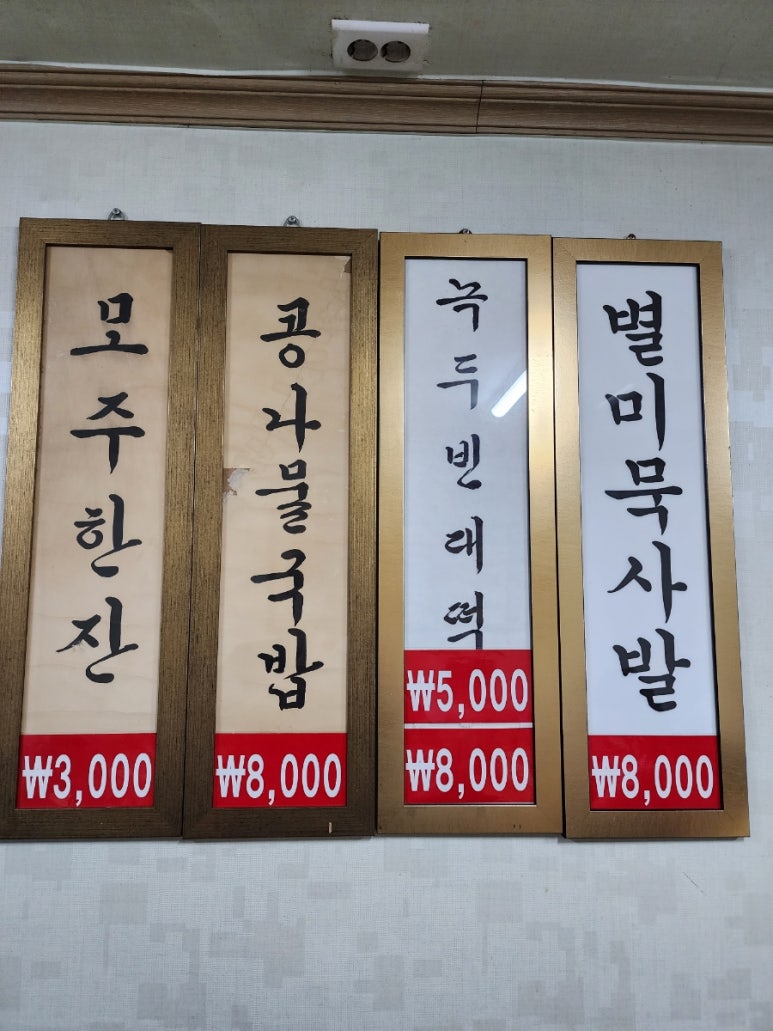 모주한잔
₩3,000
콩나물국밥
₩8,000
녹두빈대떡
₩5,000
₩8,000
별미묵사발
₩8,000